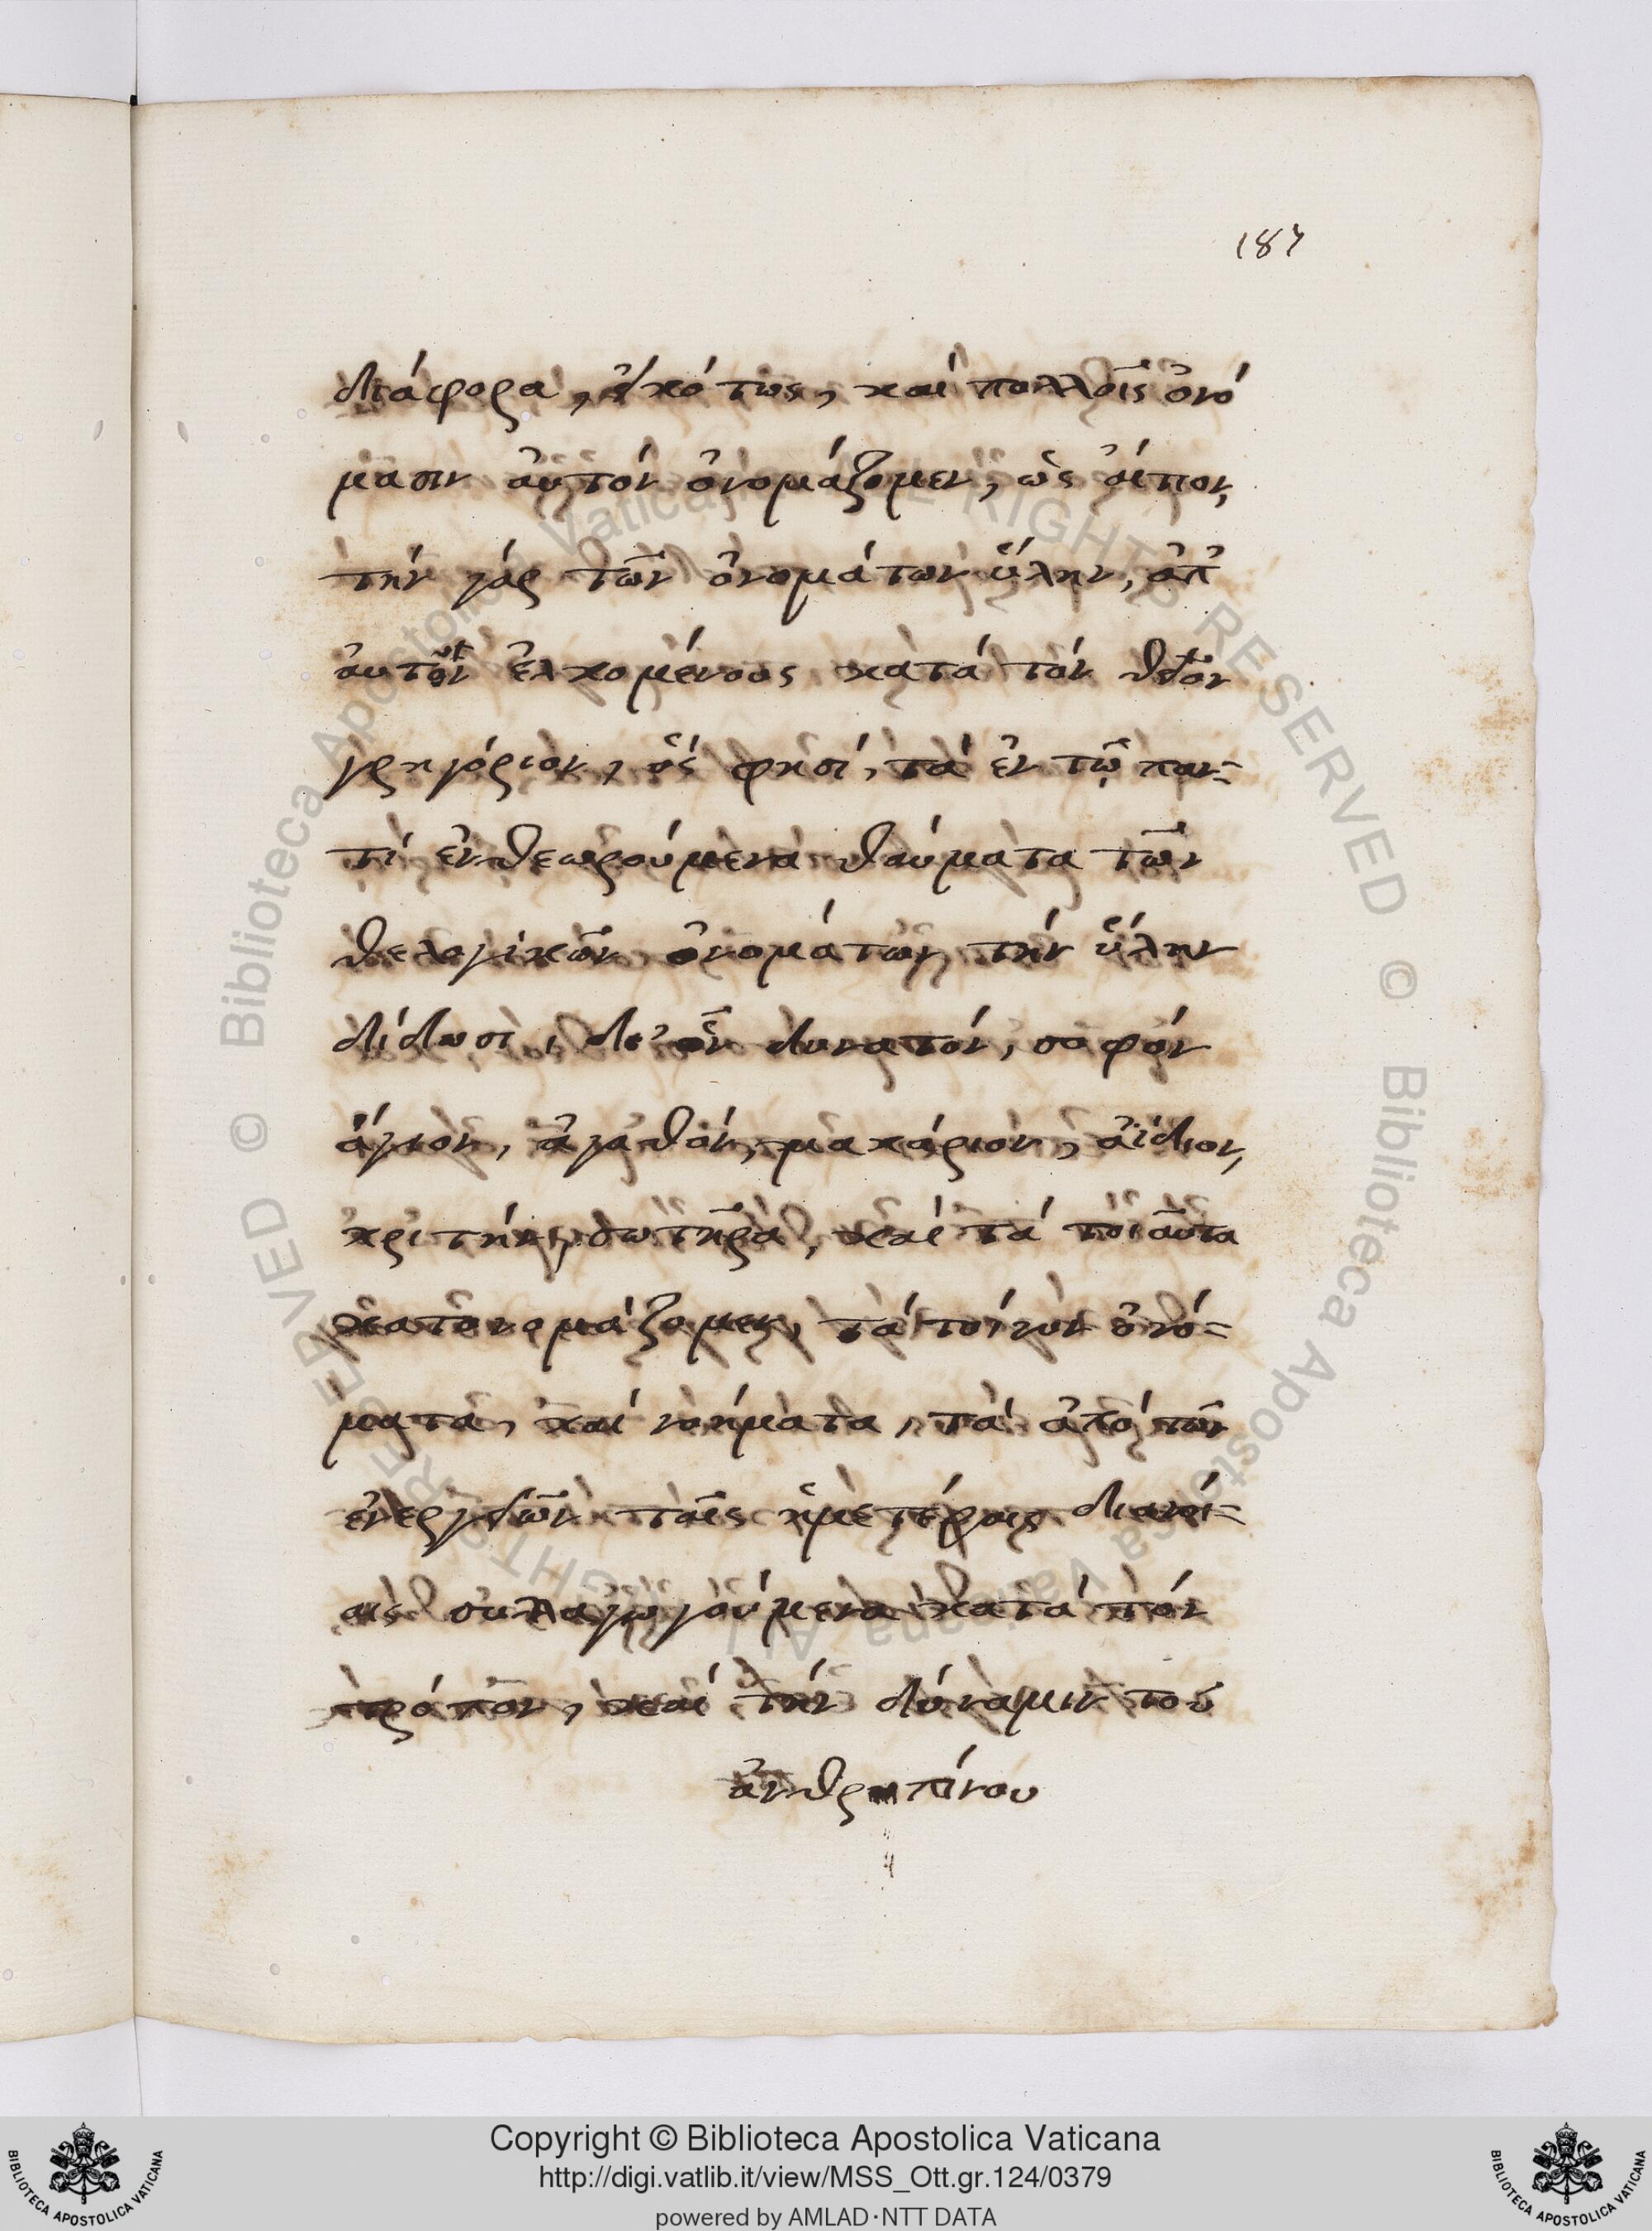 187
διάφορα, εἰκότως, καὶ πολλοῖς ὀνό
μασιν αὐτόν ὀνομάζομεν, ὡς εἶπον,
τήν γάρ τῶν ὀνομάτων ὕλην, ἀπ
αὐτῶν ἑλκομένους κατά τόν θεῖον
γρηγόριον, ὅς φησί, τά ἐν τῷ παν-
τί ἐνθεωρούμενα θαύματα τῶν
θελογικῶν ὀνομάτων τήν ὕλην
δίδωσι, δι' ὧν δυνατόν, σοφόν
ἅγιον, ἀγαθόν, μακάριον, ἀΐδιον,
κριτήν, σωτῆρα, καί τά τοιαῦτα
κατονομάζομεν, τά τοίνυν ὀνό-
ματα, καί νοήματα, τά ἀπό τῶν
ἐνεργειῶν ταῖς ἡμετέραις διανοί-
αις συλλαγωγούμενα κατά τόν
τρόπον, καί τήν δύναμιν τοῦ
ἀνθρωπίνου
Copyright © Biblioteca Apostolica Vaticana
http://digi.vatlib.it/view/MSS_Ott.gr.124/0379
powered by AMLAD·NTT DATA
BIBLIOTECA APOSTOLICA VATICANA
BIBLIOTECA APOSTOLICA VATICANA
© Biblioteca Apostolica Vaticana ALL RIGHTS RESERVED
© Biblioteca Apostolica Vaticana ALL RIGHTS RESERVED